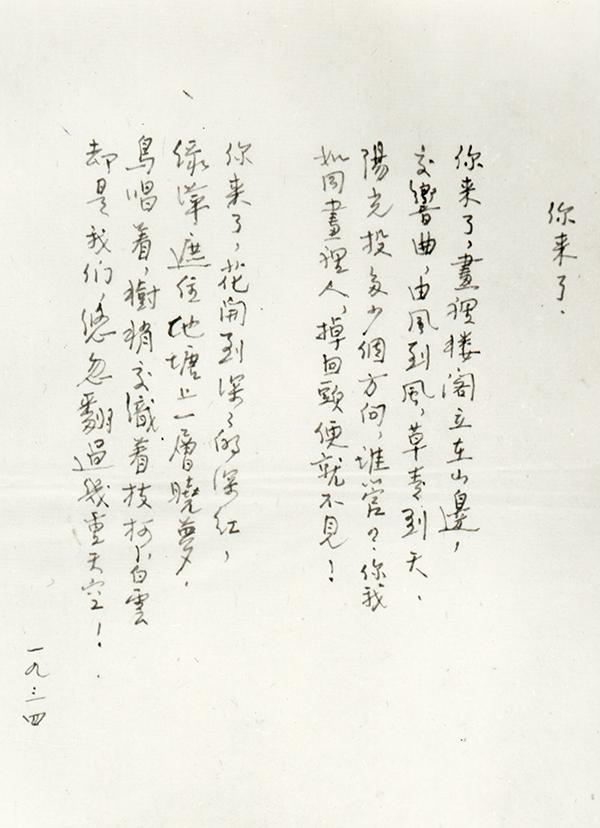 你来了.
你来了,畫裡楼阁立在山邊,
交響曲,由風到風,草青到天.
陽光投多少個方向,誰管?你我
如同畫裡人,掉回頭便就不見!
你来了,花開到深深的深红,
绿萍遮住池塘上一層曉夢,
鳥唱着,樹梢交織着枝柯,白雲
却是我们,悠忽翻過幾重天空!
一九三四